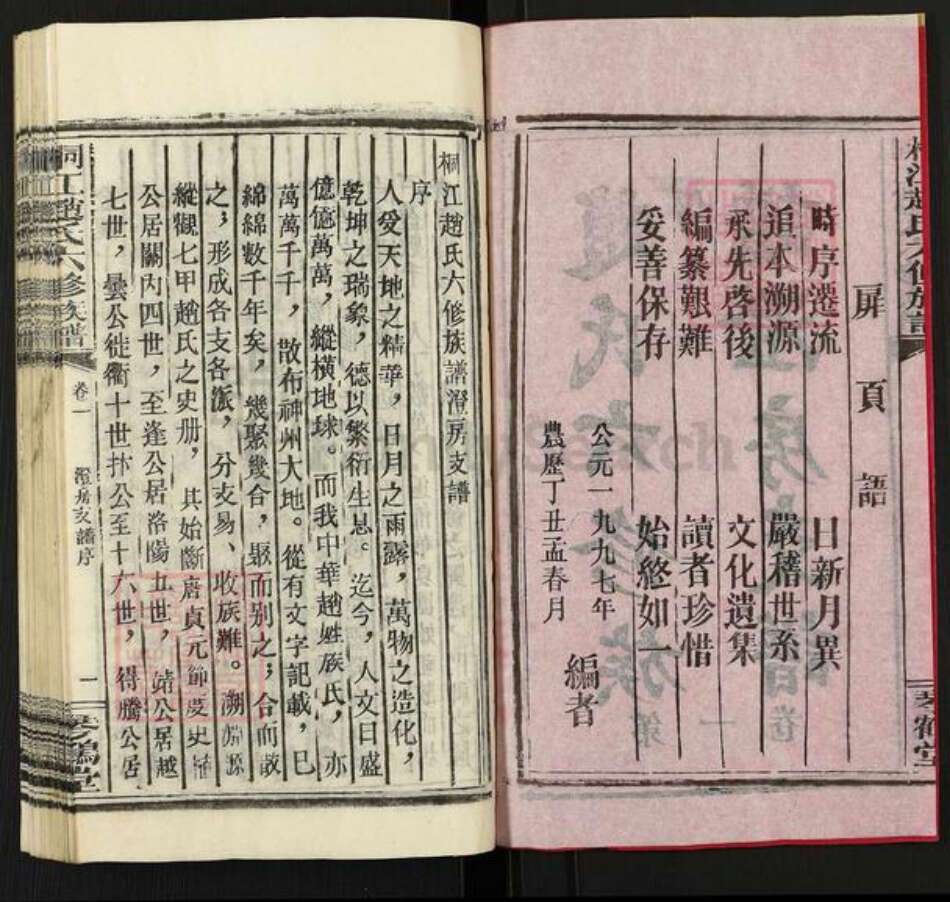 扉頁語
時序遷流　日新月異
追本溯源　嚴稽世系
承先啓後　文化遺集
編纂艱難　讀者珍惜
妥善保存　始終如一
公元一九九七年
農歷丁丑孟春月
編者
琴鶴堂
桐江趙氏六修族譜澄房支譜
序
人受天地之精華，日月之雨露，萬物之造化，
乾坤之瑞象，德以繁衍生息。迄今，人文日盛
億億萬萬，縱橫地球。而我中華趙姓族氏，亦
萬萬千千，散布神州大地。從有文字記載，已
綿綿數千年矣，幾聚幾合，聚而别之；合而散
之；形成各支各派，分支易、收族難。溯源
縱觀七甲趙氏之史册，其始斷唐貞元節度史植
公居關內四世，至逢公居洛陽五世，靖公居越
七世，曇公徙衢十世抃公至十六世，得騰公居
桐江趙氏六修族譜
卷一
澄房支譜序
一
琴鶴堂